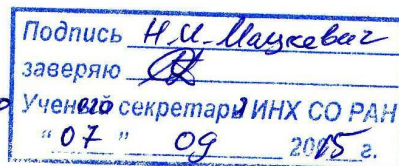 Подпись Н.М. Мацкевич
заверяю
Ученого секретаря ИНХ СО РАН
"07" 09 2015 г.